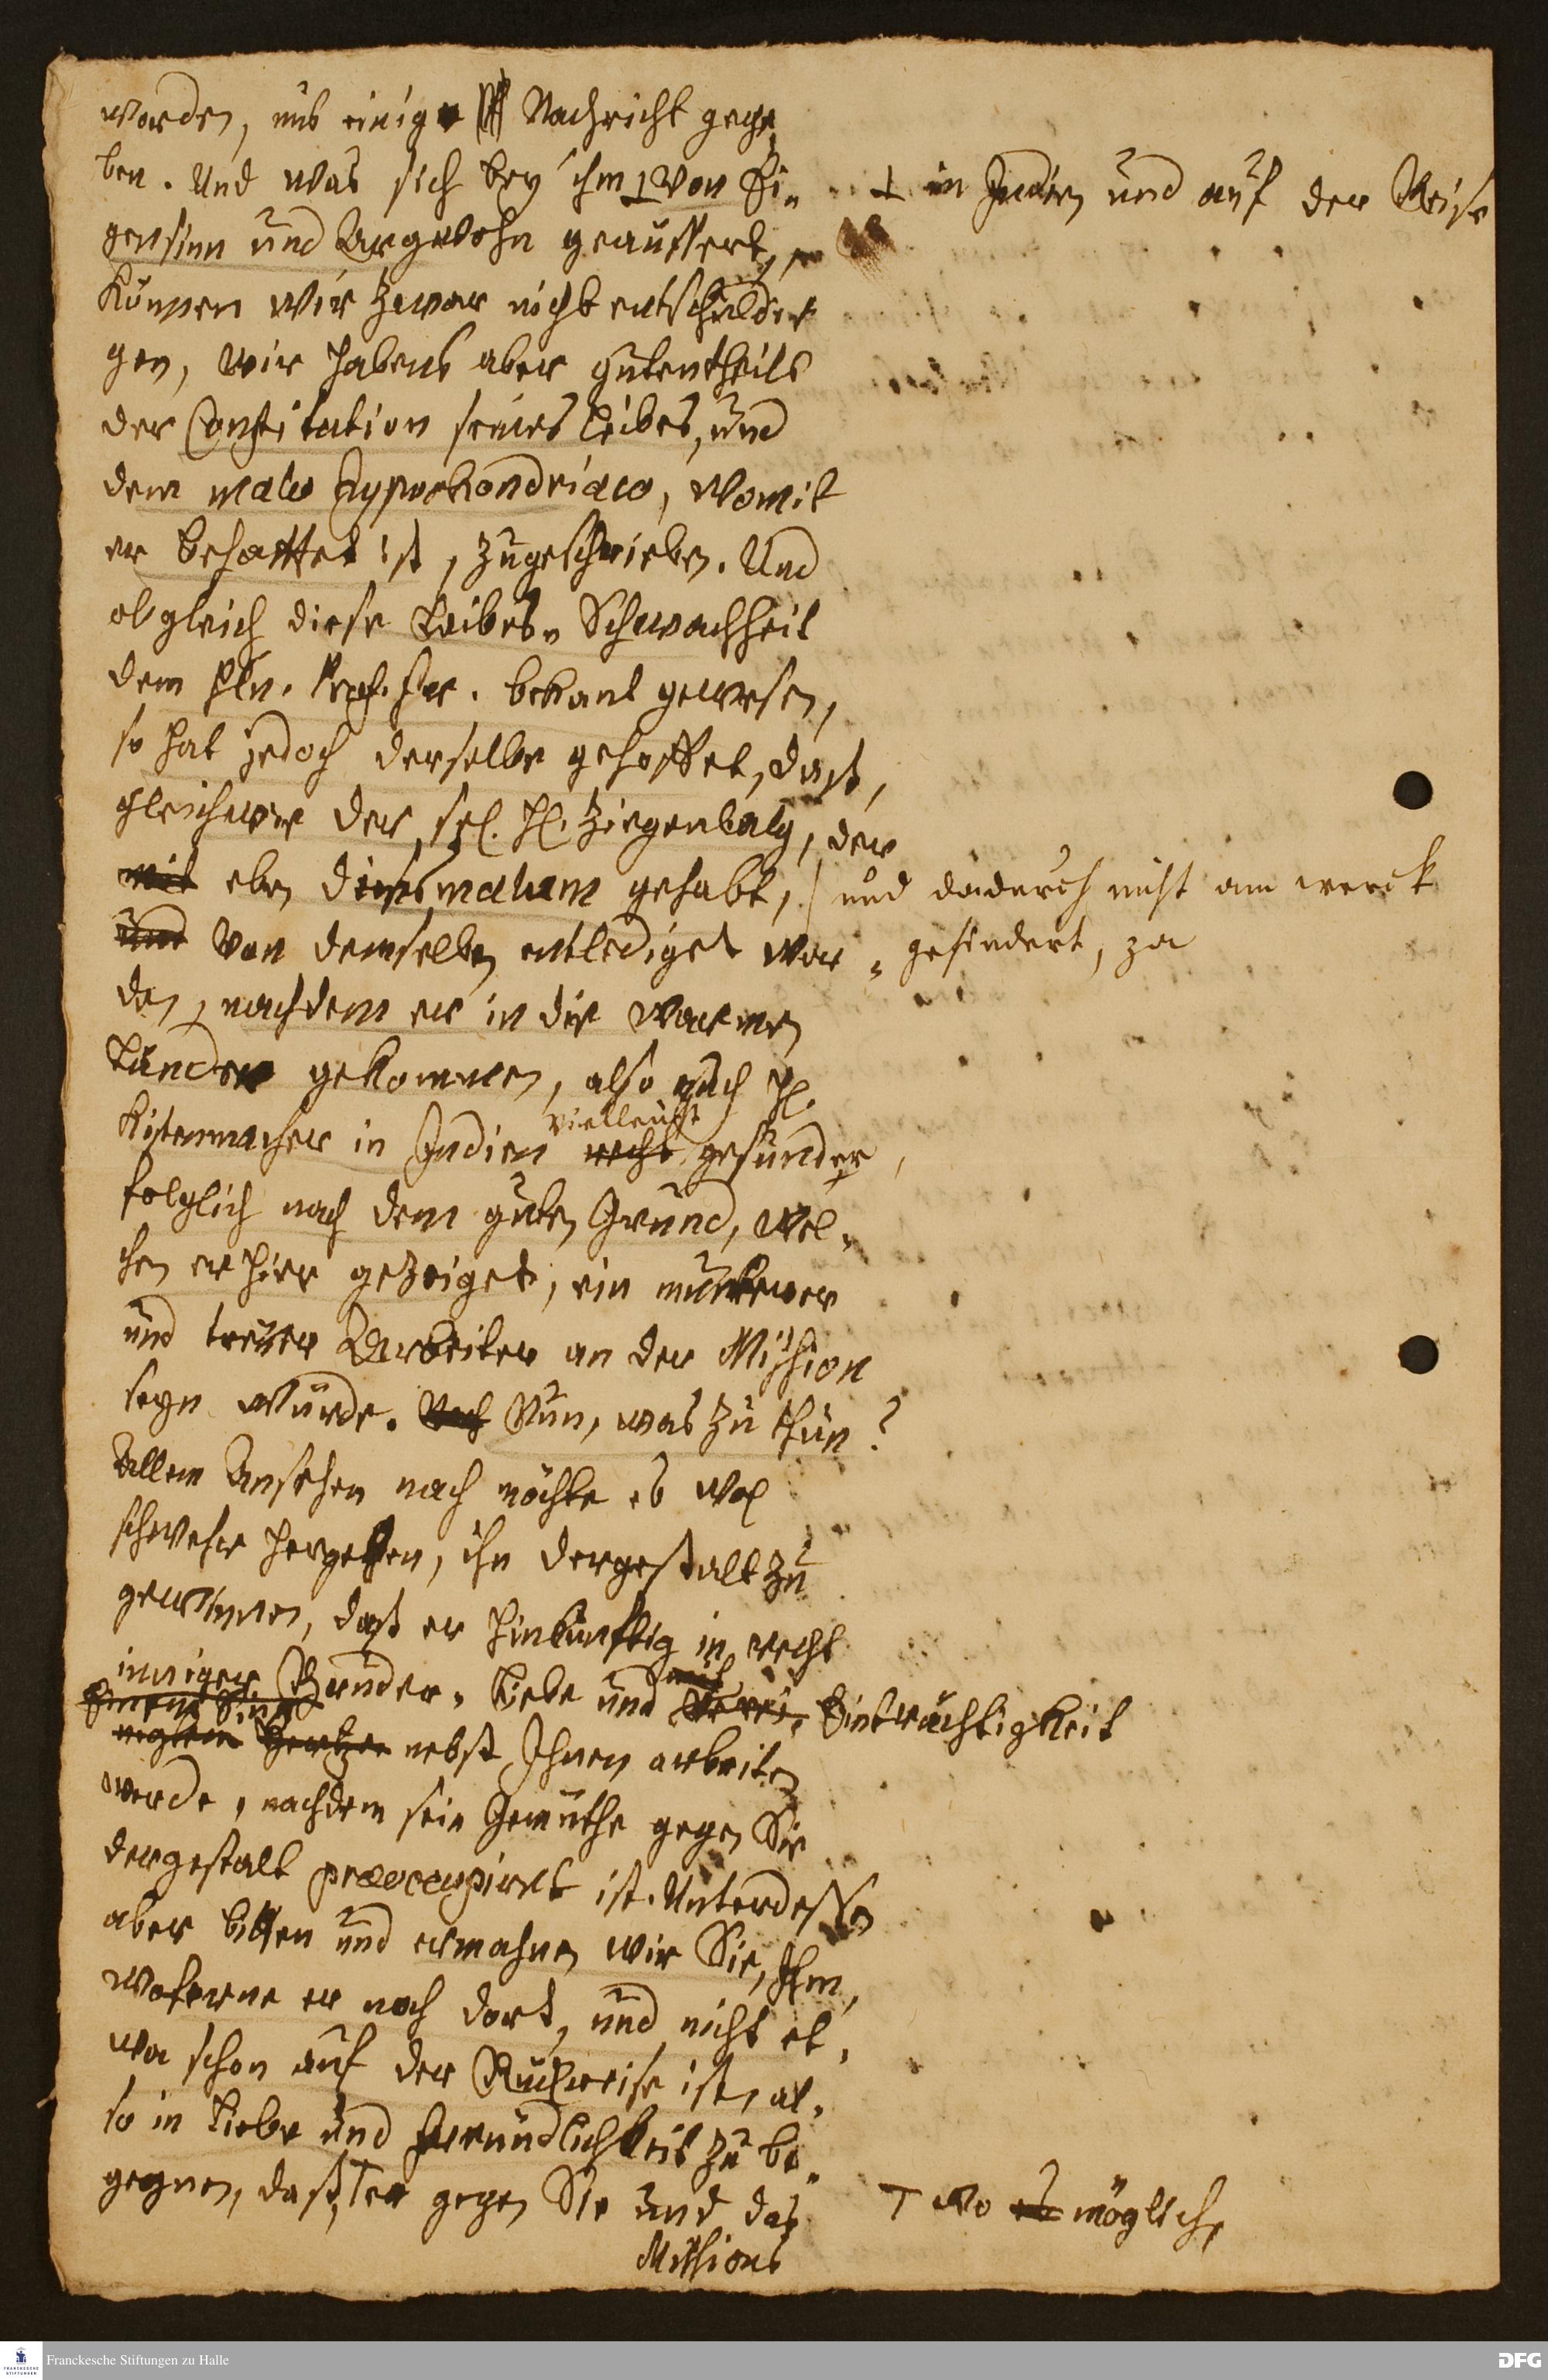 worden, uns einige Nachricht gege-
ben. Und was sich bey ihm ⊥ von Ei-
⊥ in Indien und auf der Reise
gensinn und Argwohn geäussert,
können wir zwar nicht entschuldi-
gen, wir habens aber gutentheils
der Constitution seines Leibes, und
dem malo hypochondriaco, womit
er behafftet ist, zugeschrieben. Und
obgleich diese Leibes-Schwachheit
dem Hln. Prof. Fr. bekant gewesen,
so hat jedoch derselbe gehoffet, dast,
gleichwie der sel. H. Ziegenbalg, der
mit eben dieses malum gehabt, / und dadurch nicht am werck
und von demselben entlediget wor-
gehindert, ja
den, nachdem er in die warmen
Länder gekommen, also auch H.
vielleicht
Kistenmacher in Indien recht gesunder,
folglich nach dem guten Grund, wel-
chen er hier gezeiget, ein munterer
und treuer Arbeiter an der Mission
seyn würde. Nach Nun, was zu thun?
Allem Ansehen nach möchte es wol
schwehr hergehen, ihn dergestalt zu
gewinnen, dast er hinkünfftig in recht
inniger Bruder-Liebe und Einträchtigkeit
nebst Ihnen arbeiten
werde, nachdem sein Gemüthe gegen Sie
dergestalt præoccupiret ist. Unterdessen
aber bitten und ermahnen wir Sie, Ihm,
woferne er noch dort, und nicht et-
wa schon auf der Rückreise ist, al-
so in Liebe und Freundlichkeit zu be-
gegnen, daß, ⊤ er gegen Sie und das
⊤ wo es möglich,
Missions
Franckesche Stiftungen zu Halle
FRANCKESCHE STIFTUNGEN
DFG